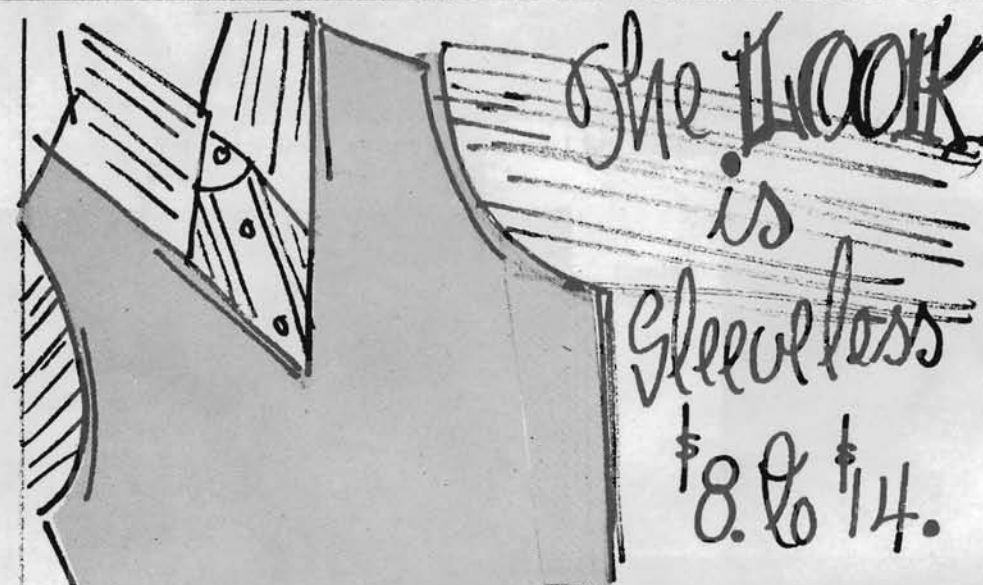 The LOOK
is
Sleeveless
$8. to $14.